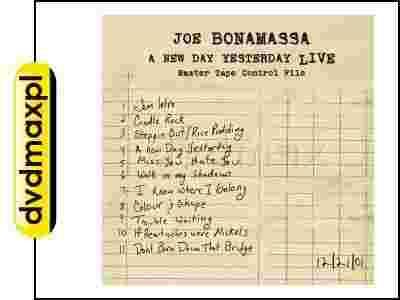 JOE BONAMASSA
A NEW DAY YESTERDAY LIVE
Master Tape Control File
1 Jam Intro
2 Cradle Rock
3 Steppin Out/Rice Pudding
4 A New Day Yesterday
5 Miss You Hate You
6 Walk in my Shadows
7 I Know Where I belong
8 Colour & Shape
9 Trouble Waiting
10 If Heartaches were Nickels
11 Dont Burn Down That Bridge
12/21/01
dvdmaxpl